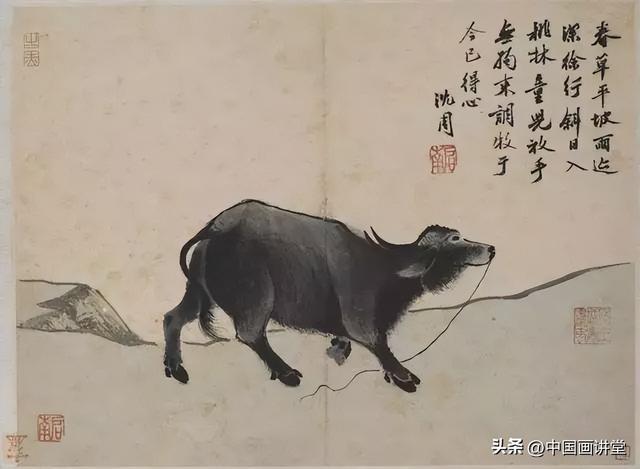 春草平坡雨迹
深徐行斜日入
桃林童兒放手
無拘束調牧于
今已得心
沈周
啟南
啟南
头条 @中国画讲堂